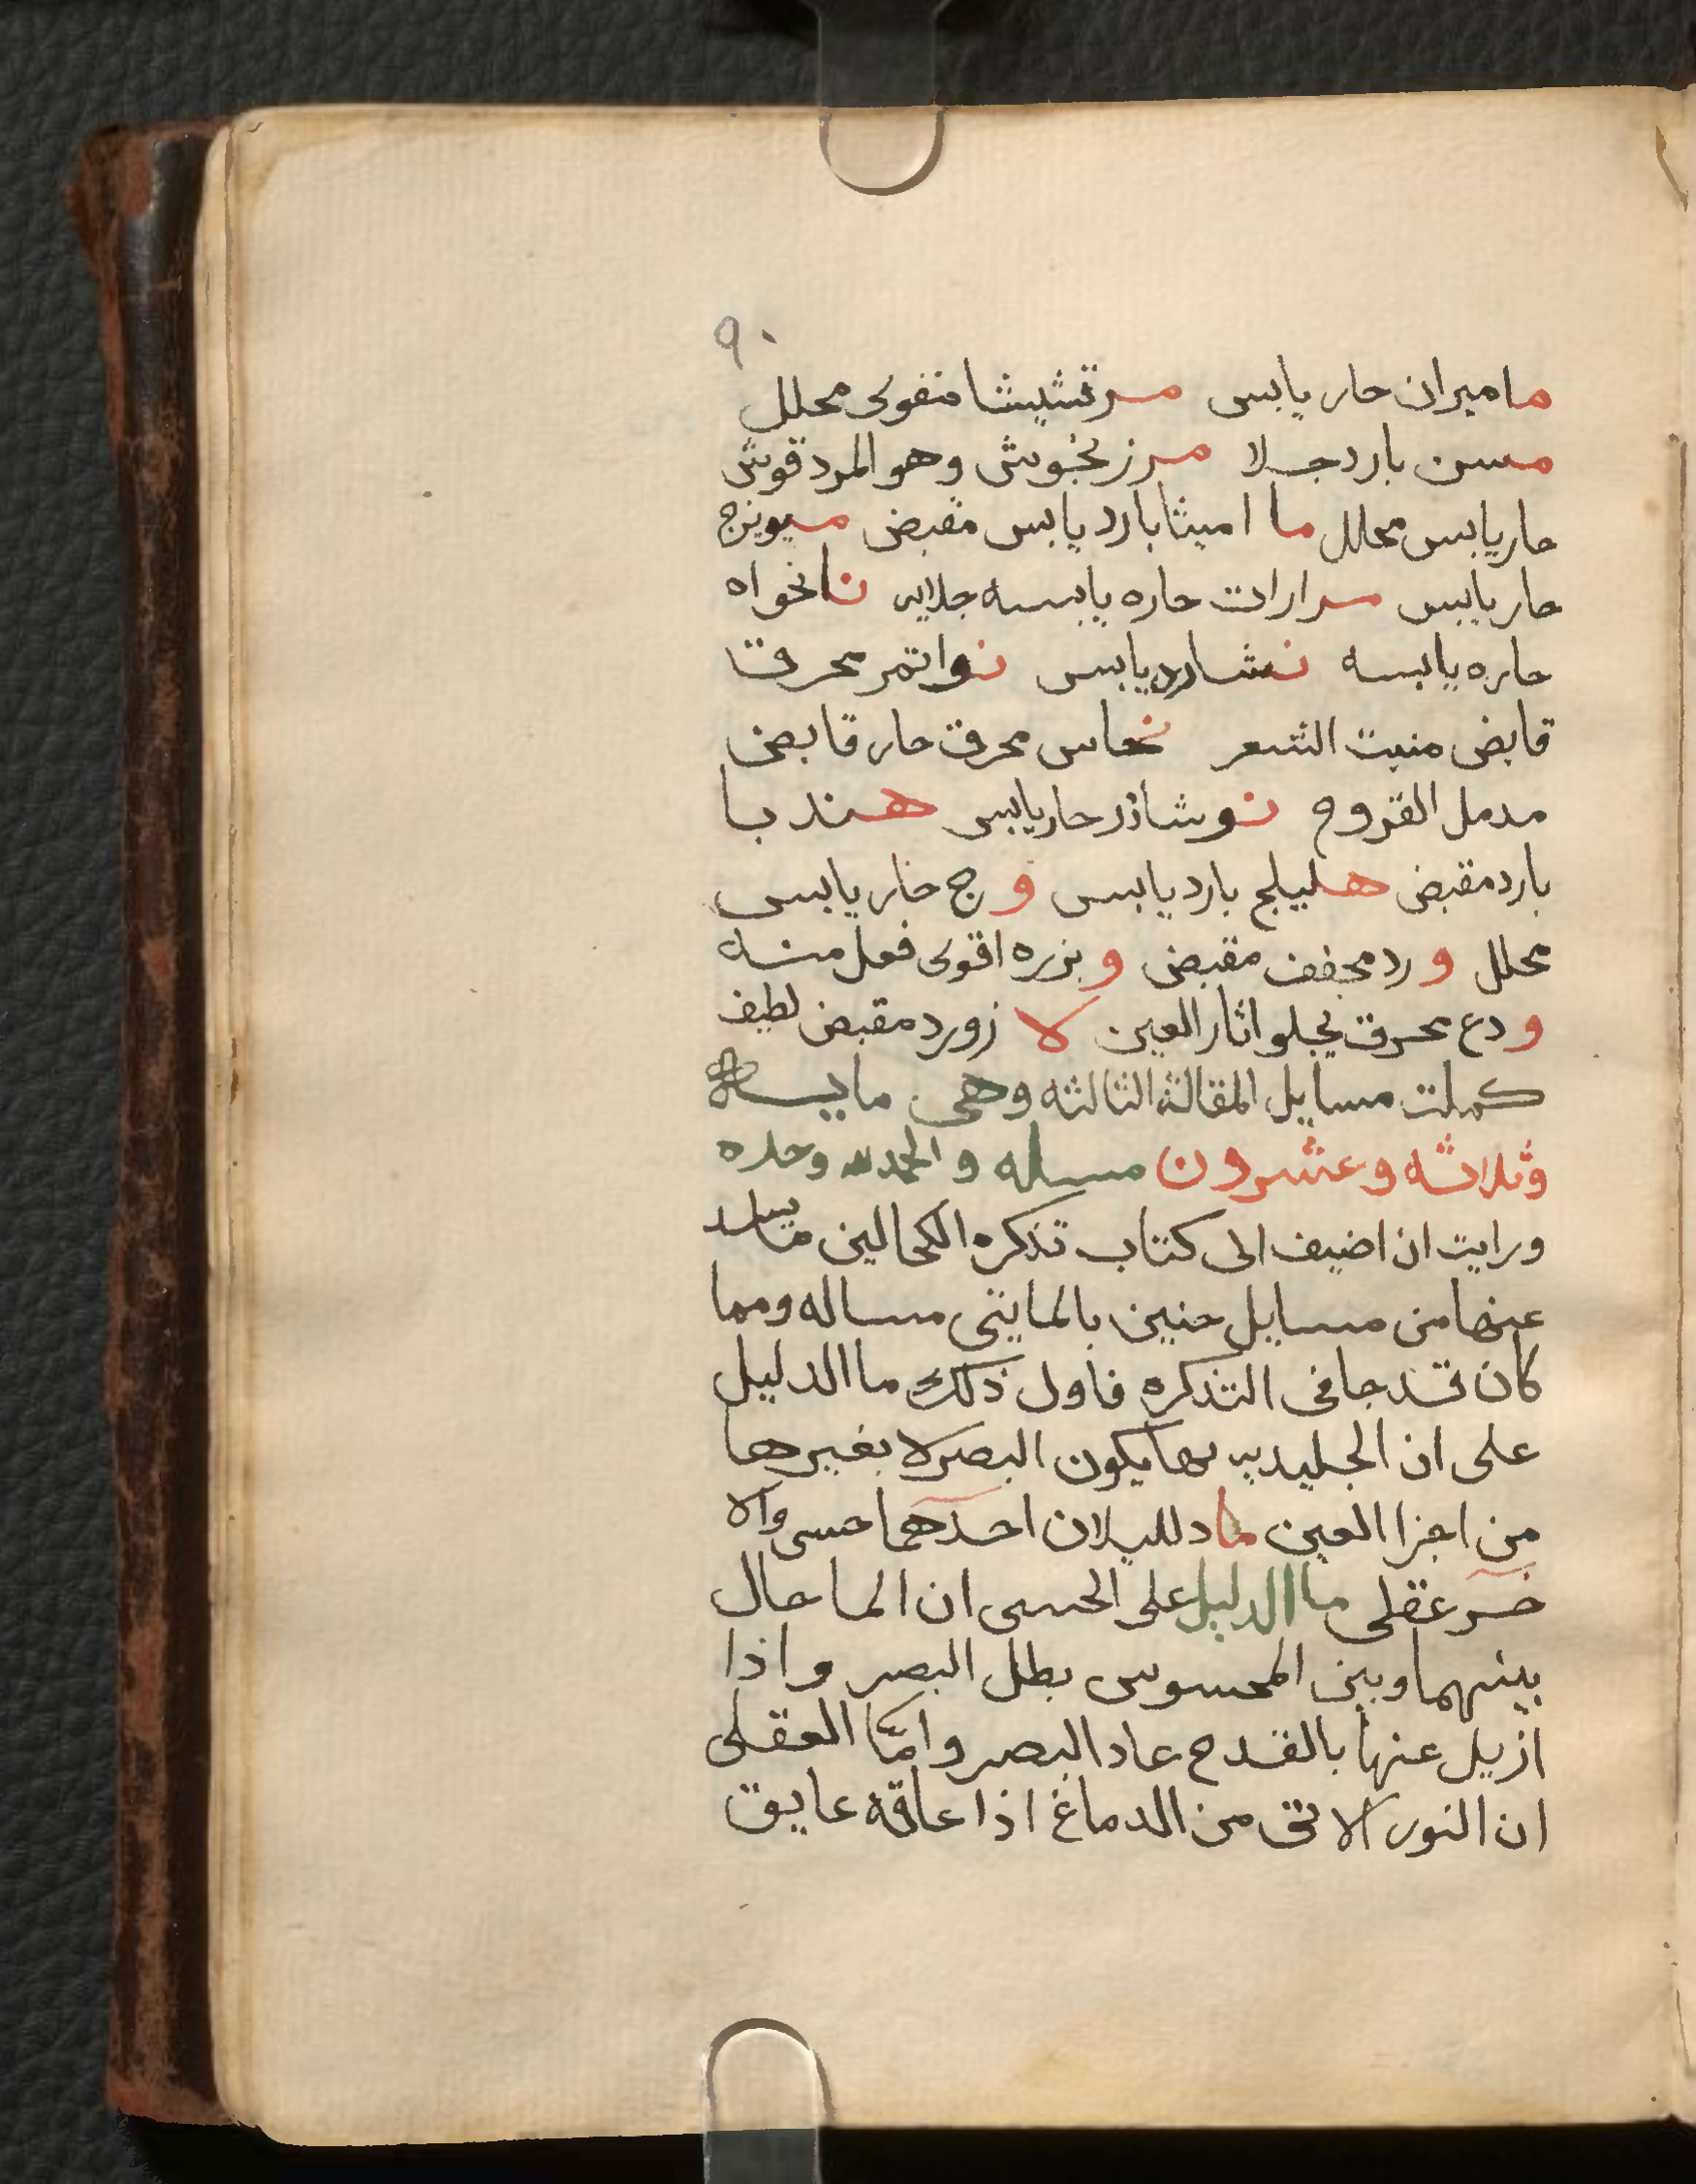 ٩٠
ماميران حار يابس مرتشيشا منقوى محلل
مسن بارد جلا مرزنجوش وهو المردقوش
حار يابس محلل ما اميثا بارد يابس مقبض ميويزج
حار يابس مرارات حاره يابسه جلايه نانخواه
حاره يابسه نشا بارد يابس نوا تمر محرق
قابض منبت الشعر نحاس محرق حار قابض
مدمل القروح نوشاذر حار يابس هندبا
بارد مقبض هليلج بارد يابس وج حار يابس
محلل ورد مجفف مقبض وبزره اقوى فعل منه
ودع محرق يجلو اثار العين لا زورد مقبض لطيف
كملت مسايل المقالة الثالثه وهى مايه
وثلاثه وعشرون مسله والحمد لله وحده
ورايت ان اضيف الى كتاب تذكره الكحالين
عنها من مسايل حنين بالمايتى مساله ومما
كان قد جا فى التذكره فاول ذلك ما الدليل
على ان الجليديه بها يكون البصر لا بغيرها
من اجزا العين ما دلليلان احدهما حسى والا
خر عقلى ما الدليل على الحسى ان الما حال
بينهما وبين المحسوس بطل البصر واذا
ازيل عنها بالقدح عاد البصر وامّا العقلى
ان النور الاتى من الدماغ اذا عاقه عايق